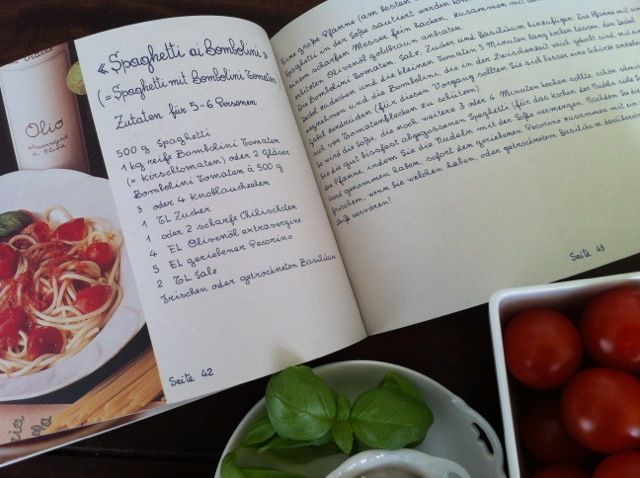 Olio
extravergine
di oliva
« Spaghetti ai Bombolini »
(= Spaghetti mit Bombolini Tomaten)
Zutaten für 5-6 Personen
500 g Spaghetti
1 kg reife Bombolini Tomaten
(= Kirschtomaten) oder 2 Gläser
Bombolini Tomaten à 500 g
3 oder 4 Knoblauchzehen
1 TL Zucker
1 oder 2 scharfe Chilischoten
4 EL Olivenöl extravergine
5 EL geriebener Pecorino
2 TL Salz
Frischen oder getrockneten Basilikum
Seite 42
Eine große Pfanne (am besten
Spaghetti in der Soße sautiert werden
einem scharfen Messer fein hacken, zusammen mit den
erhitzten Olivenöl goldbraun anbraten.
Die Bombolini Tomaten, Salz, Zucker und Basilikum hinzufügen. Die Pfanne mit
Deckel zudecken und die kleinen Tomaten 5 Minuten lang kochen lassen. Den Deckel
wegnehmen und die Bombolini, die in der Zwischenzeit weich gekocht sind, mit
Gabel zerdrücken (für diesen Vorgang sollten Sie sich besser eine Schürze anziehen
mit vor Tomatenflecken zu schützen)
So wird die Soße, die noch weitere 3 oder 4 Minuten kochen sollte, schön sämig
Sie die gut bissfest abgegossenen Spaghetti (für das Kochen der Nudeln siehe
der Pfanne, indem Sie die Nudeln mit der Soße vermengen. Nachdem Sie die
Herd genommen haben, sofort den geriebenen Pecorino zusammen mit
frischen, wenn Sie welchen haben, oder getrockneten Basilikum darüber
heiß servieren!
Seite 43